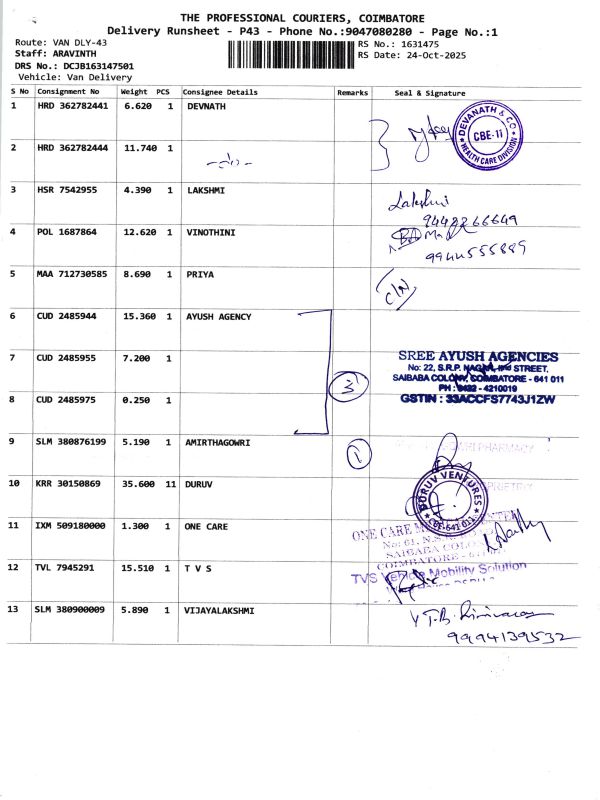 THE PROFESSIONAL COURIERS, COIMBATORE
Delivery Runsheet - P43 - Phone No.:9047080280 - Page No.:1
Route: VAN DLY-43
RS No.: 1631475
Staff: ARAVINTH
RS Date: 24-Oct-2025
DRS No.: DCJB163147501
Vehicle: Van Delivery
S No Consignment No Weight PCS Consignee Details Remarks Seal & Signature
1 HRD 362782441 6.620 1 DEVNATH
DEVANATH & CO
CBE-11
HEALTH CARE DIVISION
2 HRD 362782444 11.740 1
3 HSR 7542955 4.390 1 LAKSHMI
Lakshmi
9442266649
4 POL 1687864 12.620 1 VINOTHINI
9944555889
5 MAA 712730585 8.690 1 PRIYA
6 CUD 2485944 15.360 1 AYUSH AGENCY
7 CUD 2485955 7.200 1
SREE AYUSH AGENCIES
No: 22, S.R.P. NAGAR, STREET,
SAIBABA COLONY, COIMBATORE - 641 011
PH : 0422 - 4210019
GSTIN : 33ACCFS7743J1ZW
3
8 CUD 2485975 0.250 1
9 SLM 380876199 5.190 1 AMIRTHAGOWRI
1
PHARMACY
10 KRR 30150869 35.600 11 DURUV
DURUV VENTURES
CBE-641 011
11 IXM 509180000 1.300 1 ONE CARE
ONE CARE
No: 61, N.S.
SAIBABA COLONY
COIMBATORE
12 TVL 7945291 15.510 1 T V S
TVS Vehicle Mobility Solution
13 SLM 380900009 5.890 1 VIJAYALAKSHMI
T.B. Srinivasan
9994139532